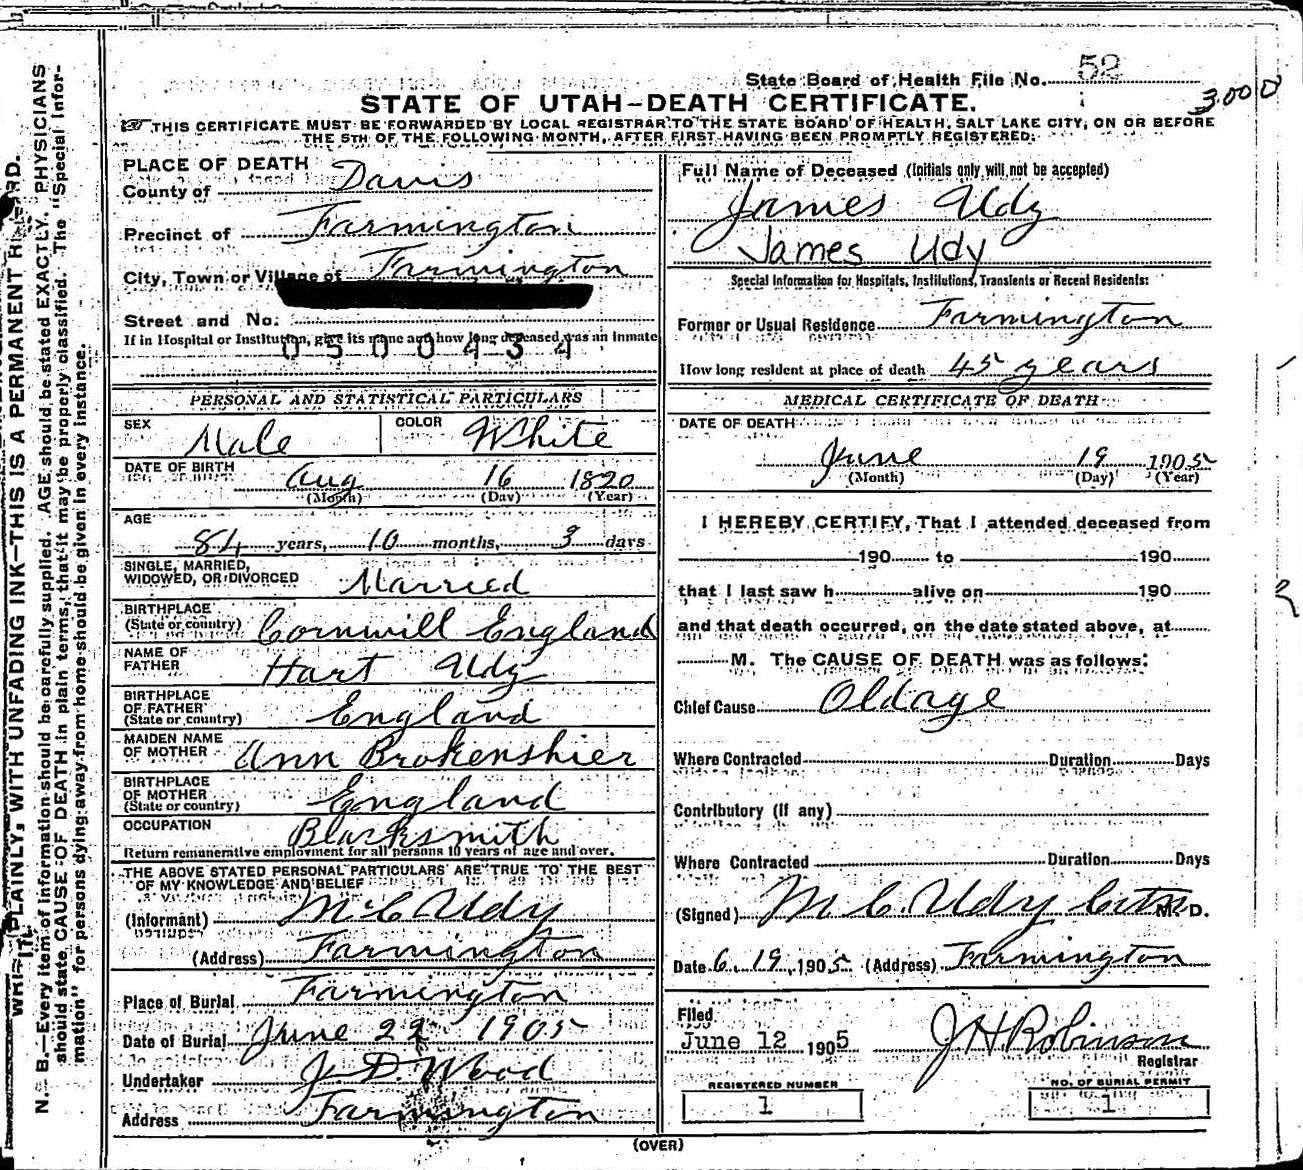 State Board of Health File No. 52
3000
STATE OF UTAH-DEATH CERTIFICATE.
THIS CERTIFICATE MUST BE FORWARDED BY LOCAL REGISTRAR TO THE STATE BOARD OF HEALTH, SALT LAKE CITY, ON OR BEFORE
THE 5TH OF THE FOLLOWING MONTH, AFTER FIRST HAVING BEEN PROMPTLY REGISTERED.
PLACE OF DEATH
County of Davis
Precinct of Farmington
City, Town or Village of Farmington
Street and No.
If in Hospital or Institution, give its name and how long deceased was an inmate
0500434
PERSONAL AND STATISTICAL PARTICULARS
SEX Male COLOR White
DATE OF BIRTH Aug 16 1820
(Month) (Day) (Year)
AGE
84 years, 10 months, 3 days
SINGLE, MARRIED,
WIDOWED, OR DIVORCED Married
BIRTHPLACE
(State or country) Cornwill England
NAME OF
FATHER Hart Udy
BIRTHPLACE
OF FATHER
(State or country) England
MAIDEN NAME
OF MOTHER Ann Brokenshier
BIRTHPLACE
OF MOTHER
(State or country) England
OCCUPATION Blacksmith
Return remunerative employment for all persons 10 years of age and over.
THE ABOVE STATED PERSONAL PARTICULARS ARE TRUE TO THE BEST
OF MY KNOWLEDGE AND BELIEF
(Informant) M C Udy
(Address) Farmington
Place of Burial Farmington
Date of Burial June 22 1905
Undertaker J. D. Wood
Address Farmington
Full Name of Deceased (Initials only will not be accepted)
James Udy
James Udy
Special Information for Hospitals, Institutions, Transients or Recent Residents:
Former or Usual Residence Farmington
How long resident at place of death 45 years
MEDICAL CERTIFICATE OF DEATH
DATE OF DEATH
June 19 1905
(Month) (Day) (Year)
I HEREBY CERTIFY, That I attended deceased from
190 to 190
that I last saw h alive on 190
and that death occurred, on the date stated above, at
M. The CAUSE OF DEATH was as follows:
Chief Cause Oldage
Where Contracted Duration Days
Contributory (if any)
Where Contracted Duration Days
(Signed) M C. Udy M. D.
Date 6. 19, 1905 (Address) Farmington
Filed
June 12 1905 J H Robinson
Registrar
REGISTERED NUMBER
1
NO. OF BURIAL PERMIT
1
(OVER)
PLAINLY, WITH UNFADING INK—THIS IS A PERMANENT
N. B.—Every item of information should be carefully supplied. AGE should be stated EXACTLY. PHYSICIANS
should state CAUSE OF DEATH in plain terms, that it may be properly classified. The "Special Infor-
mation" for persons dying away from home should be given in every instance.
2